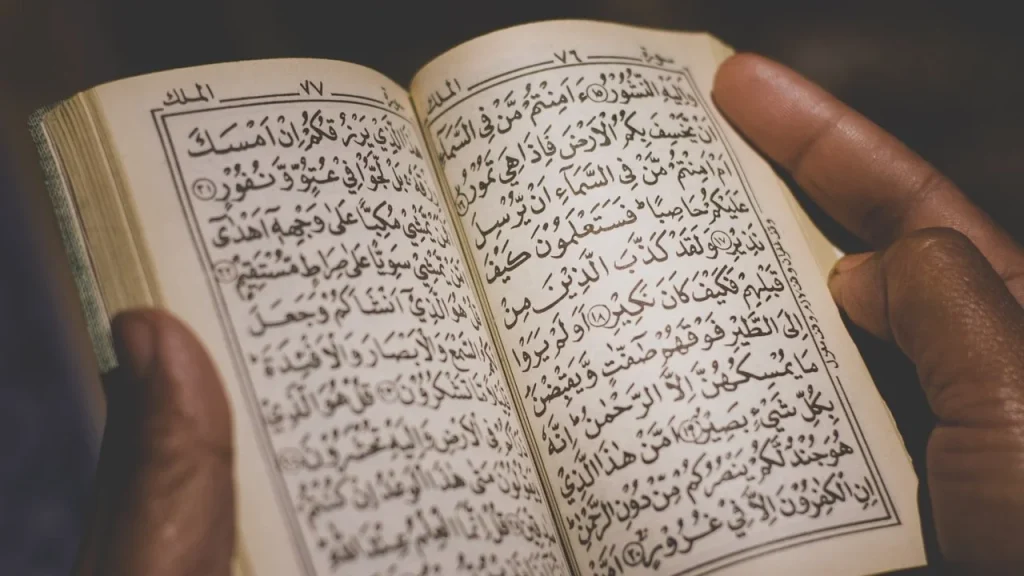 سورة ٧٦ الملك
وَاِلَيْهِ النُّشُوْرُ ١٥ ءَاَمِنْتُمْ مَّنْ فِي السَّمَآءِ
اَنْ يَّخْسِفَ بِكُمُ الْاَرْضَ فَاِذَا هِيَ تَمُوْرُ
اَمْ اَمِنْتُمْ مَّنْ فِي السَّمَآءِ اَنْ يُّرْسِلَ
عَلَيْكُمْ حَاصِبًا ؕ فَسَتَعْلَمُوْنَ كَيْفَ
نَذِيْرِ ١٧ وَلَقَدْ كَذَّبَ الَّذِيْنَ مِنْ
قَبْلِهِمْ فَكَيْفَ كَانَ نَكِيْرِ ١٨ اَوَلَمْ يَرَوْا
اِلَى الطَّيْرِ فَوْقَهُمْ صٰٓفّٰتٍ وَّيَقْبِضْنَ
مَا يُمْسِكُهُنَّ اِلَّا الرَّحْمٰنُ ؕ اِنَّهٗ
بِكُلِّ شَيْءٍ بَصِيْرٌ ١٩ اَمَّنْ هٰذَا الَّذِيْ
هُوَ جُنْدٌ لَّكُمْ يَنْصُرُكُمْ مِّنْ دُوْنِ الرَّحْمٰنِ
اِنِ الْكٰفِرُوْنَ اِلَّا فِيْ غُرُوْرٍ ٢٠ اَمَّنْ
٧٧ الملك
الَّذِيْ يَرْزُقُكُمْ اِنْ اَمْسَكَ
بَلْ لَّجُّوْا فِيْ عُتُوٍّ وَّنُفُوْرٍ ٢١
يَّمْشِيْ مُكِبًّا عَلٰى وَجْهِهٖٓ اَهْدٰٓى
يَّمْشِيْ سَوِيًّا عَلٰى صِرَاطٍ مُّسْتَقِيْمٍ ٢٢
هُوَ الَّذِيْٓ اَنْشَاَكُمْ وَجَعَلَ
السَّمْعَ وَالْاَبْصَارَ وَالْاَفْئِدَةَ
مَّا تَشْكُرُوْنَ ٢٣ قُلْ هُوَ الَّذِيْ
فِي الْاَرْضِ وَاِلَيْهِ تُحْشَرُوْنَ
يَقُوْلُوْنَ مَتٰى هٰذَا الْوَعْدُ اِنْ كُنْتُمْ
قُلْ اِنَّمَا الْعِلْمُ عِنْدَ اللّٰهِ